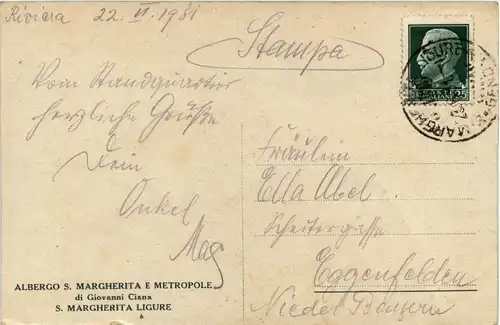 Riviera 22. VI. 1931
Stampa
Vom Standquartier
herzliche Grüße
Dein
Onkel
Mag
ALBERGO S. MARGHERITA E METROPOLE
di Giovanni Ciana
S. MARGHERITA LIGURE
Fräulein
Ella Abel
Eggenfelden
Nieder Bayern